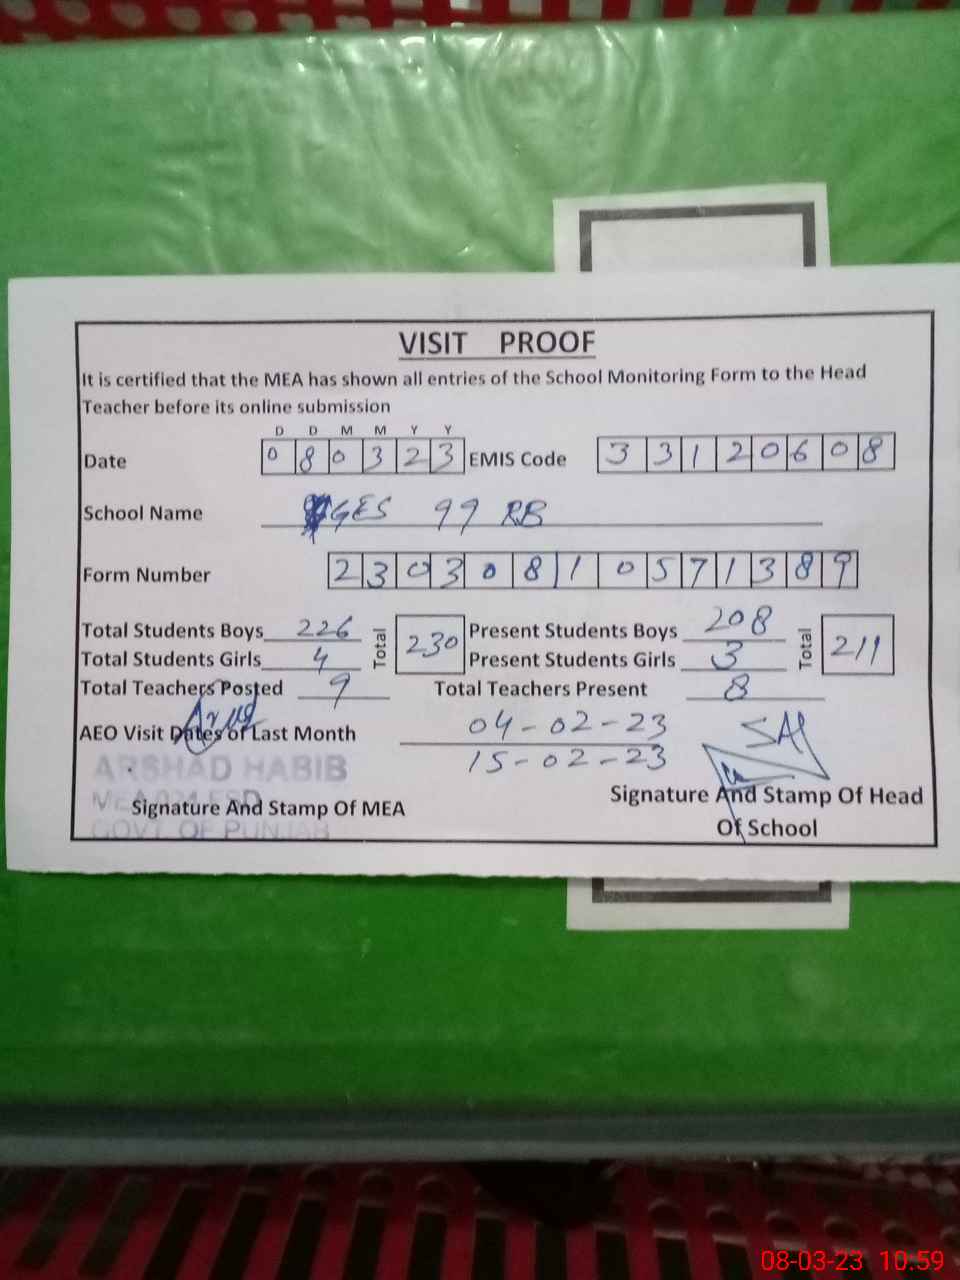 VISIT PROOF
It is certified that the MEA has shown all entries of the School Monitoring Form to the Head
Teacher before its online submission
D D M M Y Y
Date 0 8 0 3 2 3 EMIS Code 3 3 1 2 0 6 0 8
School Name GES 99 RB
Form Number 2 3 0 3 0 8 1 0 5 7 1 3 8 9
Total Students Boys 226 Total 230 Present Students Boys 208 Total 211
Total Students Girls 4 Present Students Girls 3
Total Teachers Posted 9 Total Teachers Present 8
AEO Visit Dates of Last Month 04-02-23
15-02-23
ARSHAD HABIB
MEA
Signature And Stamp Of MEA
GOVT. OF PUNJAB
Signature And Stamp Of Head
Of School
08-03-23 10.59